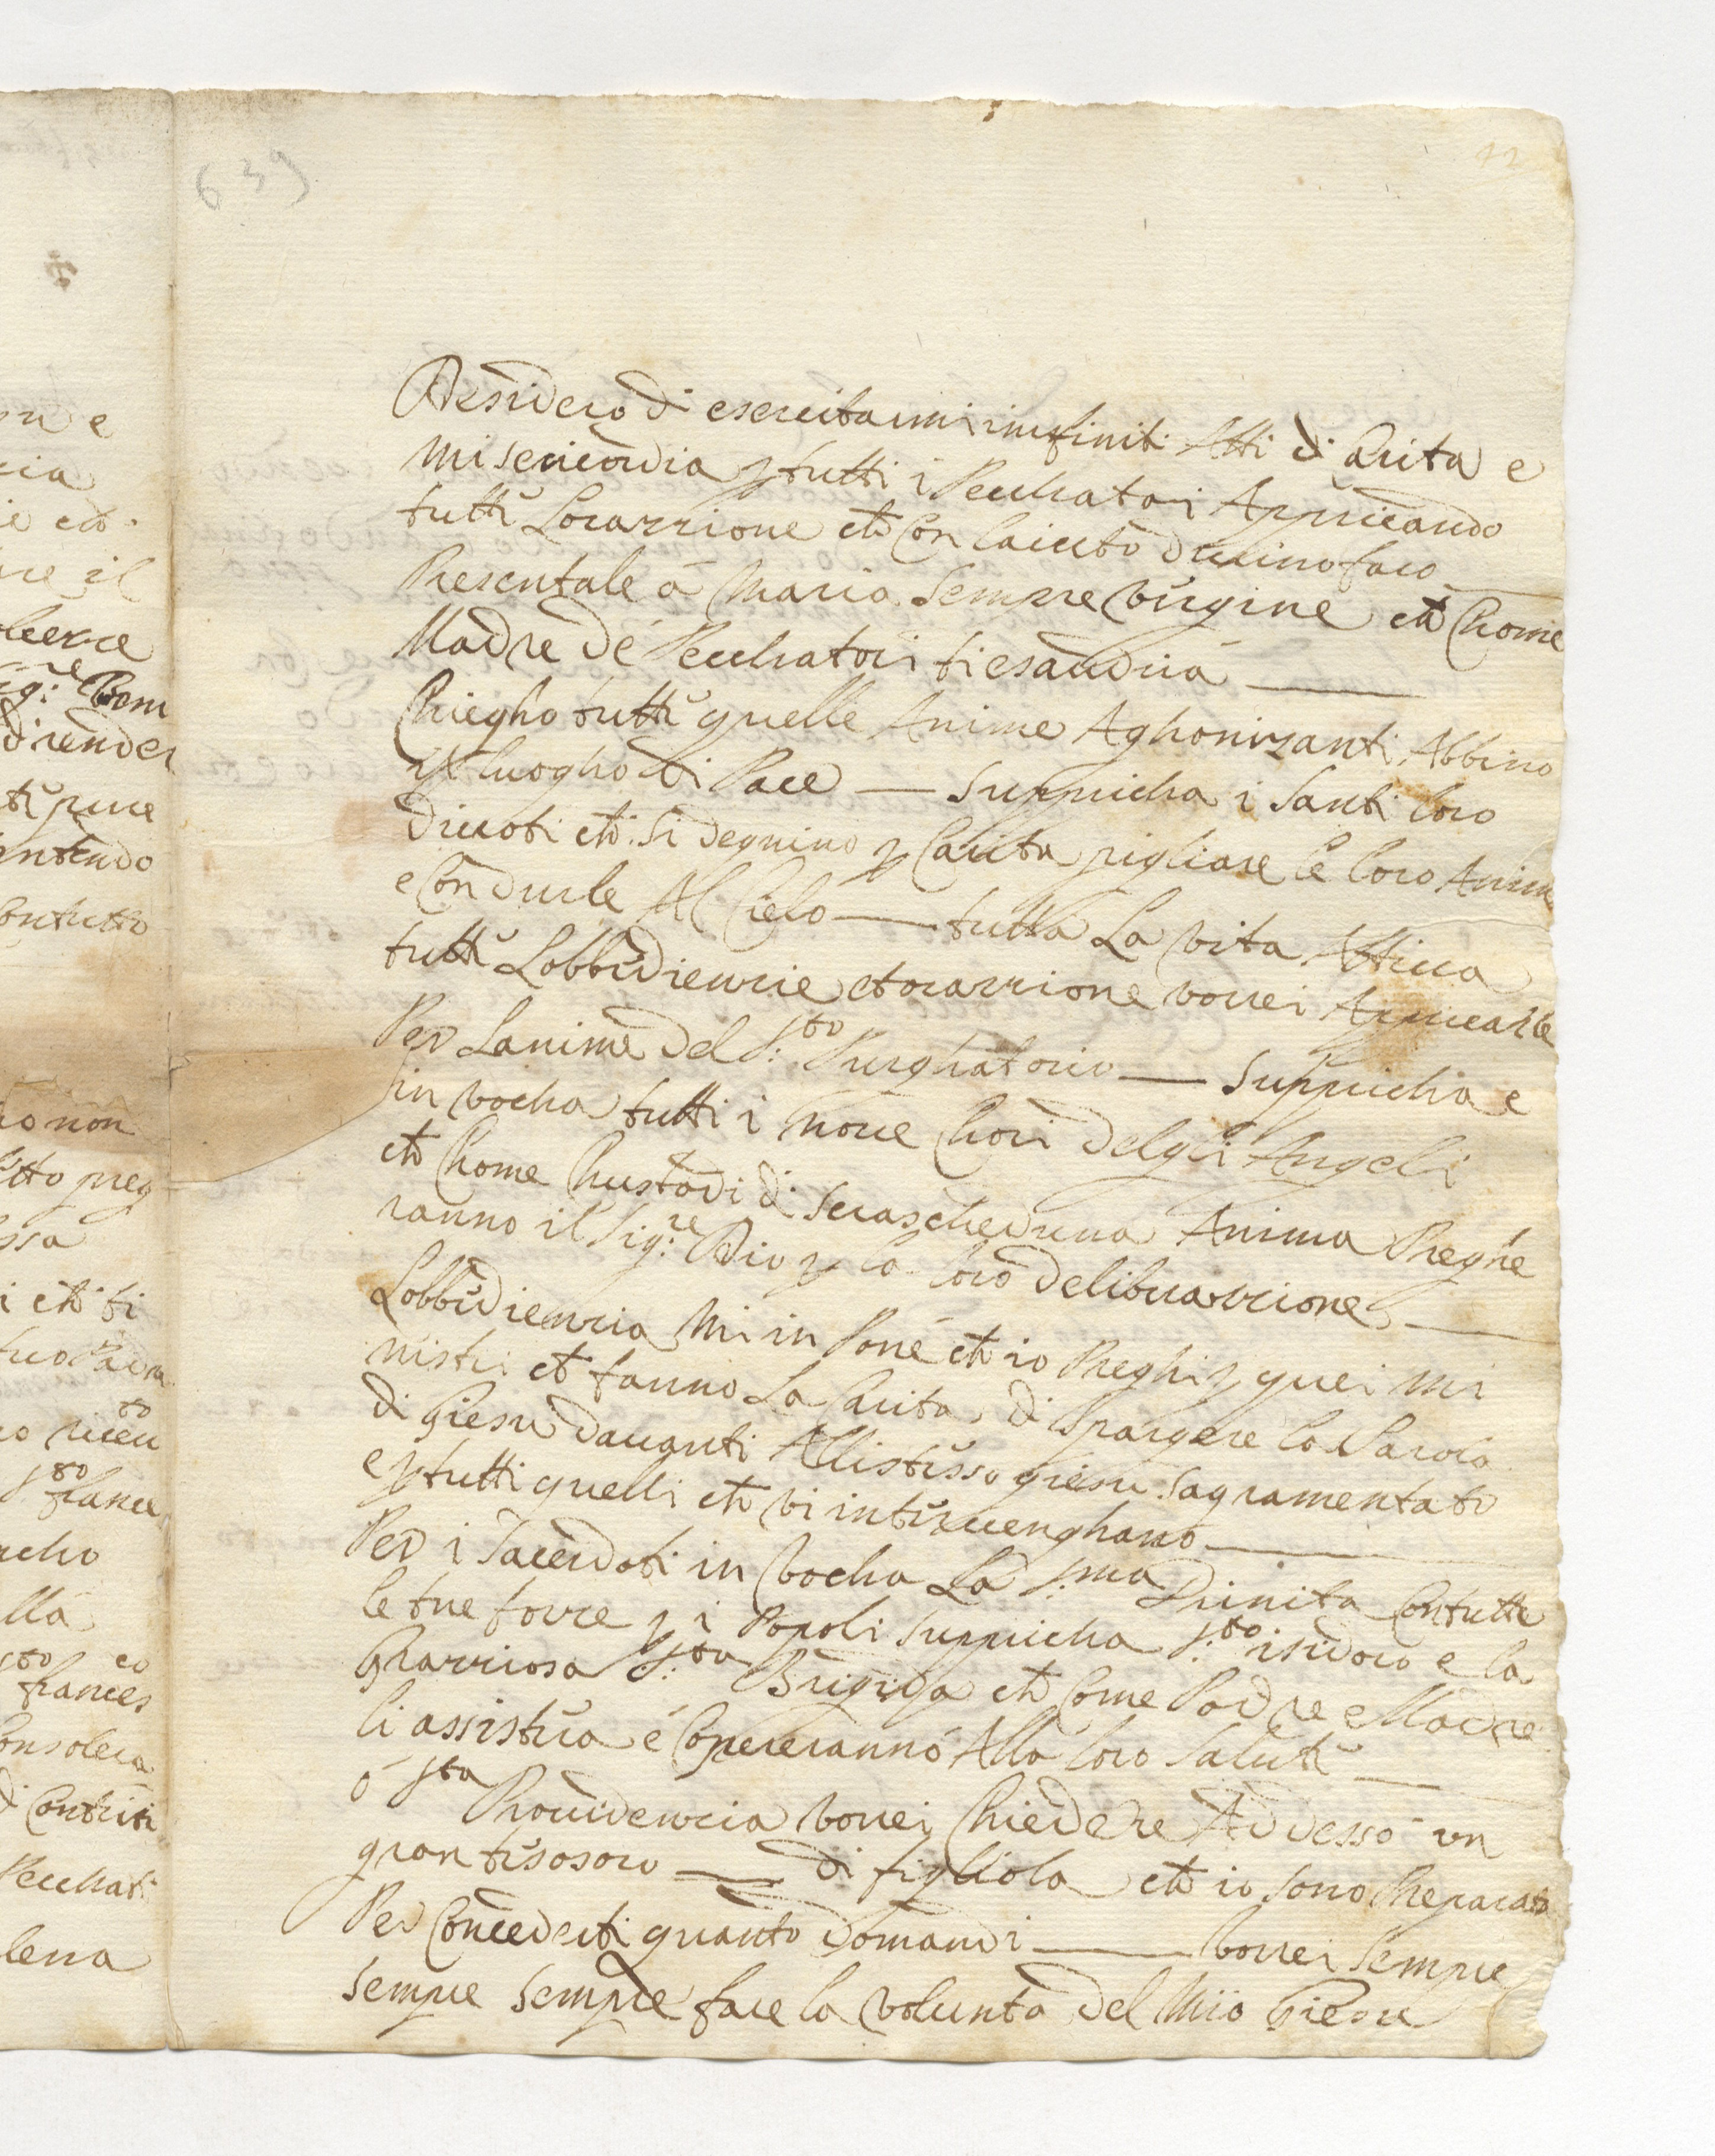 639
12
Desidero di esercitarmi infiniti Atti di Carita e
Misericordia p tutti i Pecchatori Appricando
tutte Lorazzione etd Con laiuto divino faro
Presentale á Maria Sempre Virgine etd Chome
Madre de Pecchatori ti esaudira ——
Priegho tutte quelle Anime Aghonizanti Abbino
luogho di Pace — Suppricha i Santi loro
divoti etd: Si degnino p Carita pigliare le loro Anim
e Condurle Al Cielo — tutta La vita Attiva
tutte Lobbidienzie et orazzione vorrei Appricarle
Per Lanime del S:to Purghatorio — Suppricha e
in vocha tutti i nove Chori delgli Angeli
etd Chome Chustodi di Ciascheduna Anima Preghe
ranno il Sig:re Dio p la loro deliberazzione —
Lobbidienzia Mi in Pone etd io Preghi p quei mi
nistri et fanno La Carita di Spargere la Parola
di Giesu davanti Allistesso giesu Sagramentato
e p tutti quelli etd vi intervenghano —
Per i Sacerdoti in Vocha La S:ma Trinita Con tutte
le tue forze p i Popoli Suppricha S:to isidoro e la
Grazziosa S:ta Brigida etd Come Padre e Madre
li assistera é Coopereranno Alla loro Salute —
ó Sta Providenzia vorrei Chiedere Addesso un
gran tesosoro — di figliola etd io sono Preparato
Per Concederti quanto domandi — Vorrei Sempre
Sempre Sempre fare la volunta del Mio Giesu